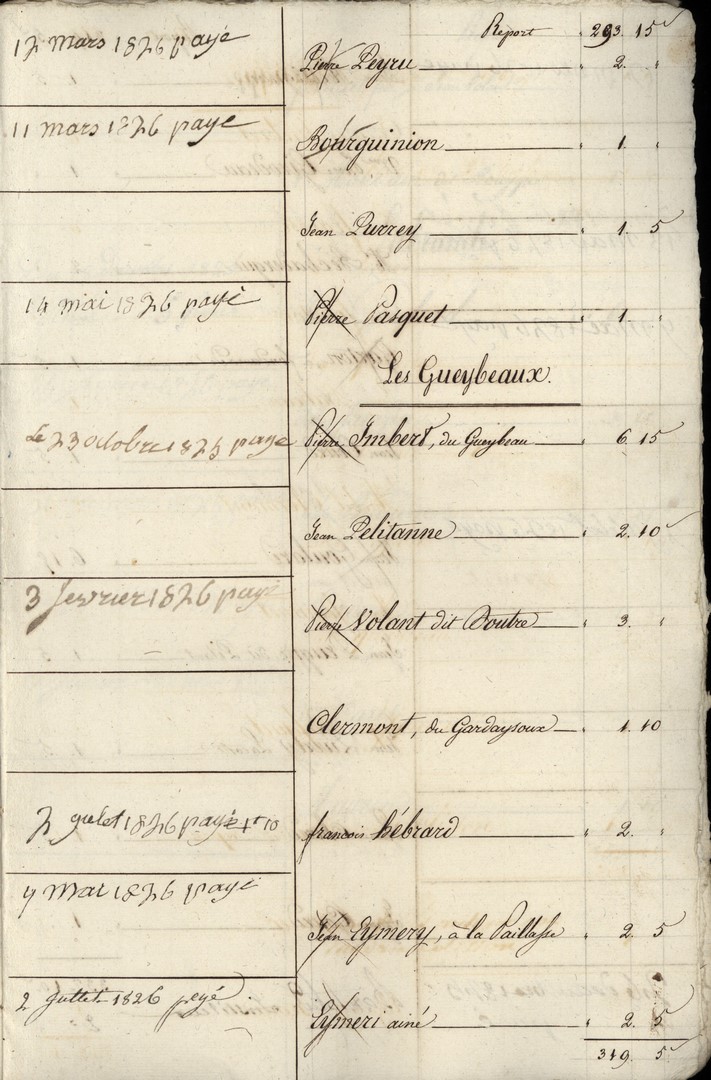 Report " 293. 15
12 mars 1826 payé
Pierre Peyru " 2. "
11 mars 1826 payé
Bourguinion " 1. "
Jean Purrey " 1. 5
14 mai 1826 payé
Pierre Pasquet " 1. "
Les Gueybeaux.
Le 23 octobre 1825 paye
Pierre Imbert, du Gueybeau " 6. 15
Jean Pelitanne " 2. 10
3 fevrier 1826 payé
Pierre Volant dit Doutre " 3. "
Clermont, du Gardaysoux " 1. 10
2 gulet 1826 payé 1tt 10
francois hébrard " 2. "
4 Mai 1826 payé
Jean Eymery, à la Paillasse " 2. 5
2 gullet 1826 peyé
Eymeri ainé " 2. 5
319. 5